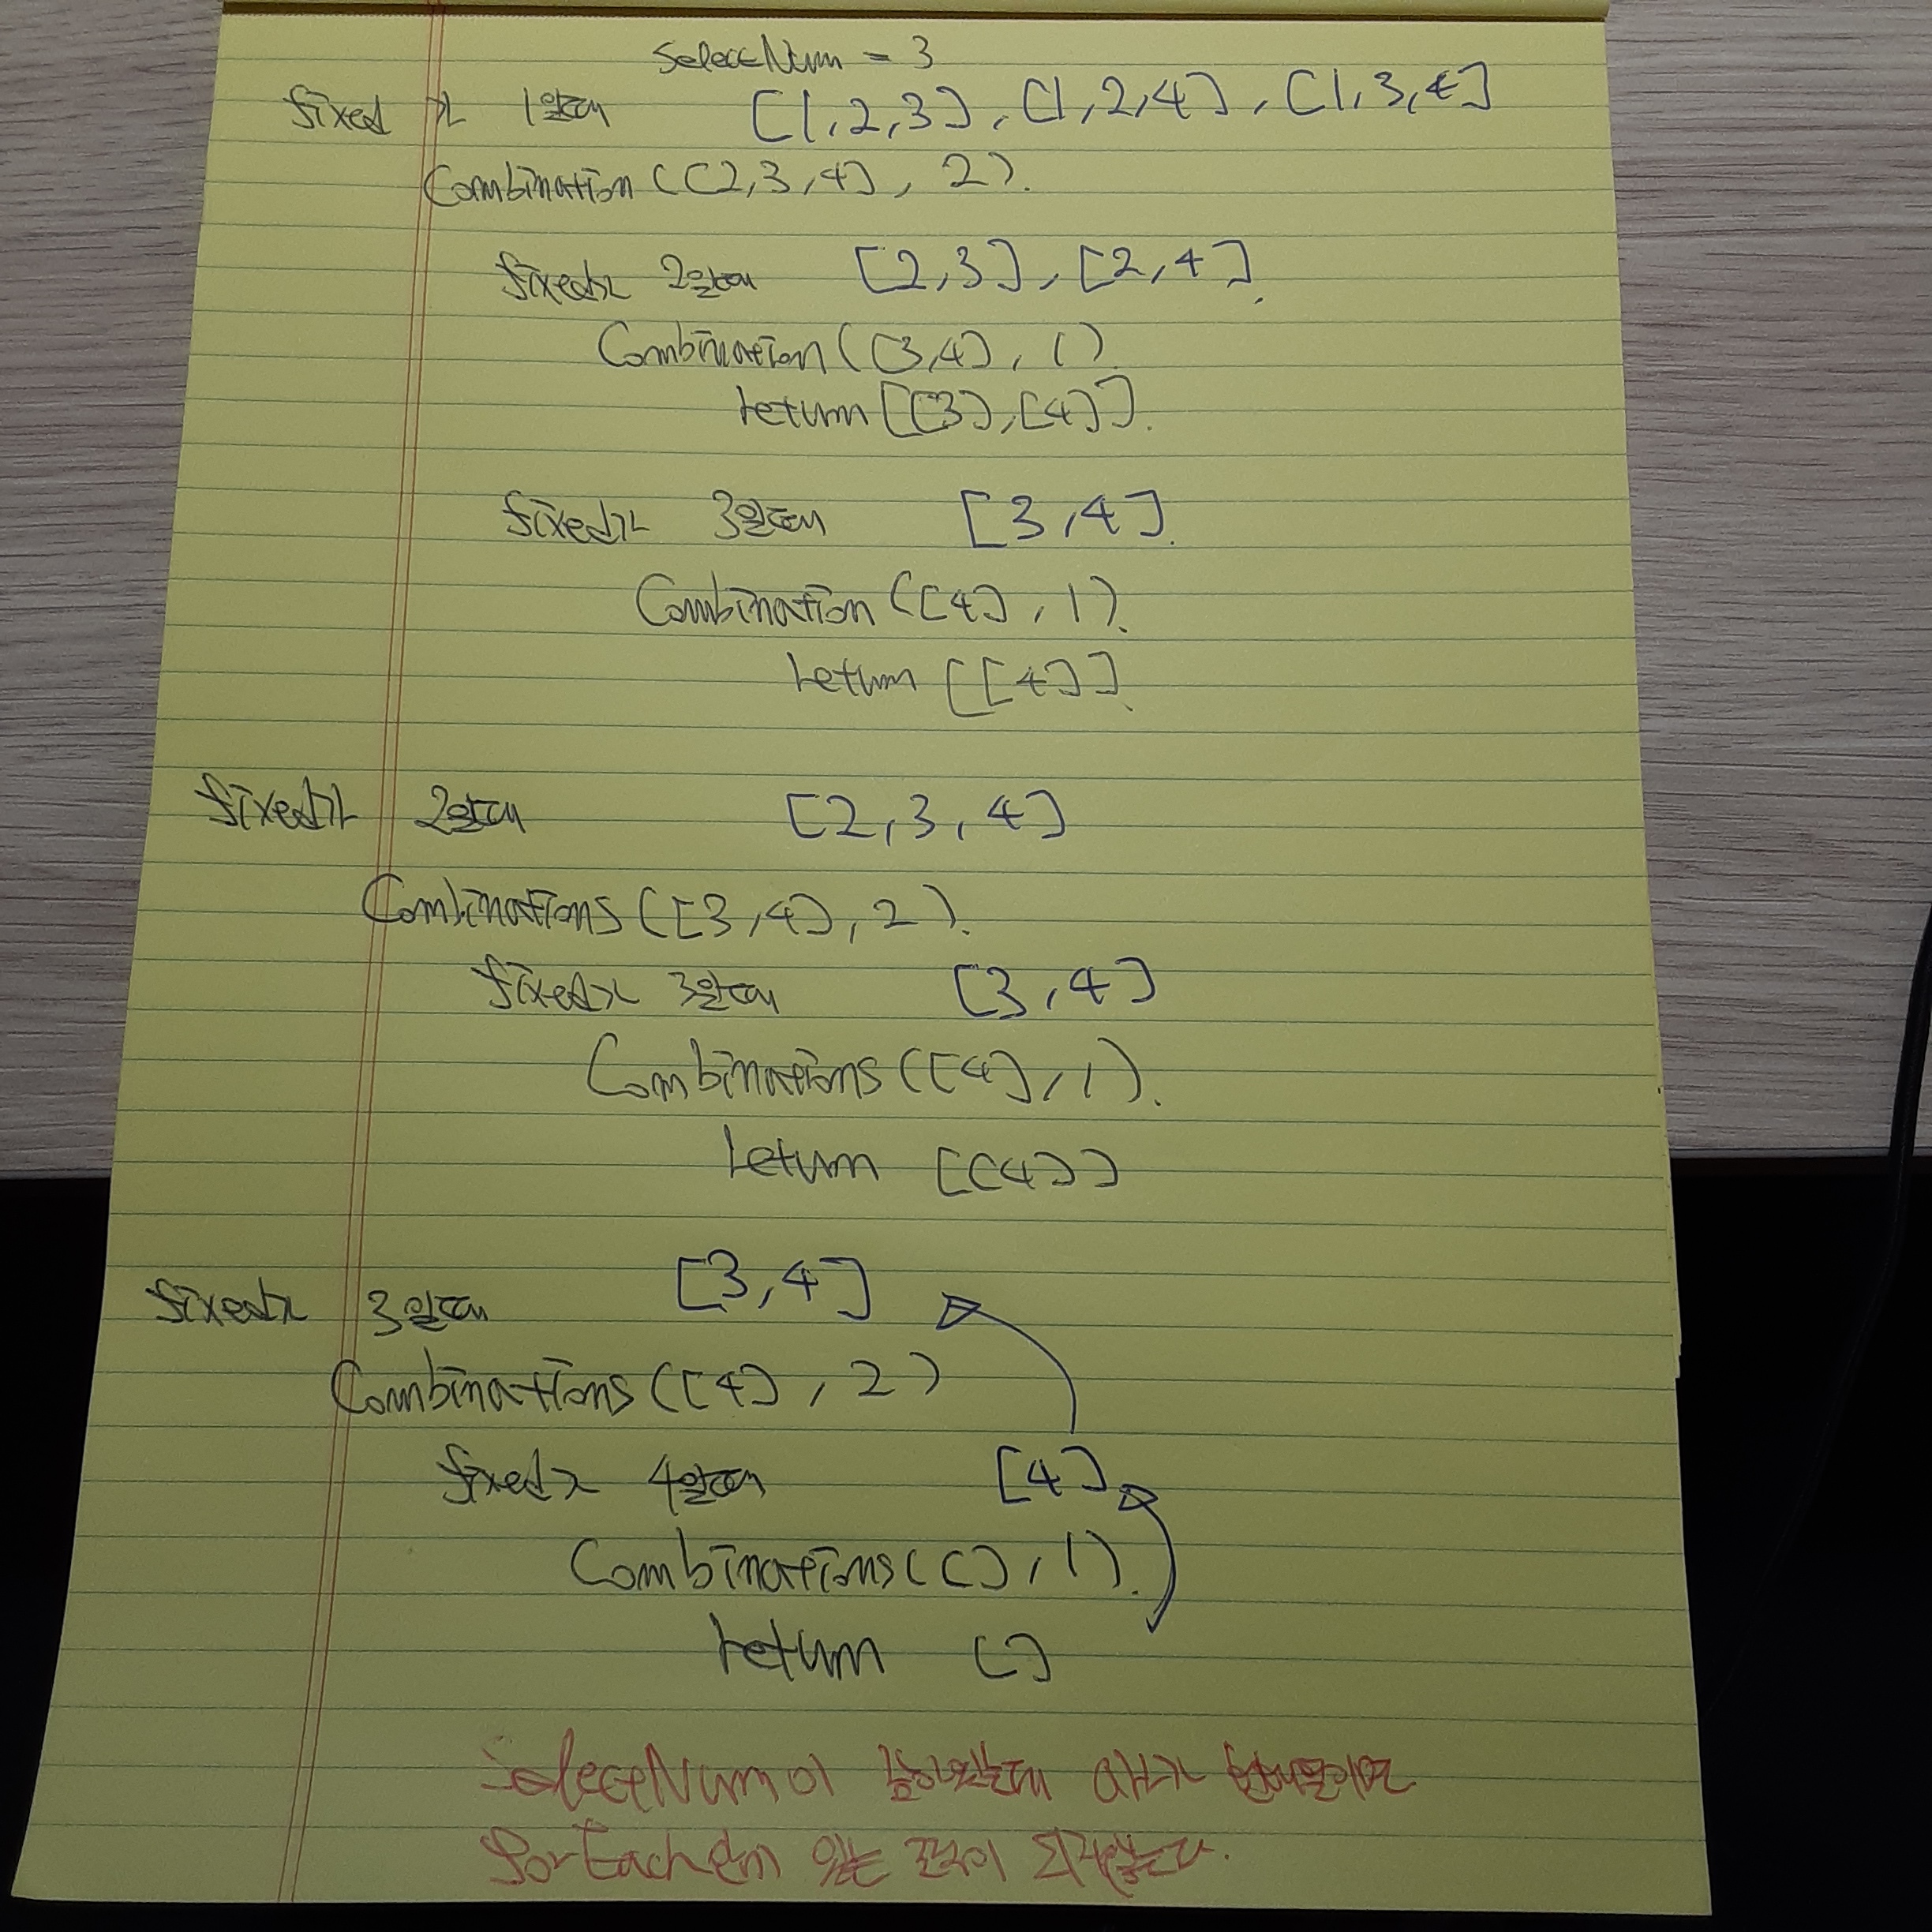 SelectNum = 3
fixed 가 1일때 [1,2,3], [1,2,4], [1,3,4]
Combination([2,3,4], 2).
fixed가 2일때 [2,3], [2,4].
Combination([3,4], 1).
return [[3],[4]].
fixed가 3일때 [3,4].
Combination([4], 1).
return [[4]].
fixed가 2일때 [2,3,4]
Combinations([3,4], 2).
fixed가 3일때 [3,4]
Combinations([4], 1).
return [[4]]
fixed가 3일때 [3,4]
Combinations([4], 2)
fixed가 4일때 [4]
Combinations([], 1).
return []
SelectNum이
forEach 있는 되지않는다.